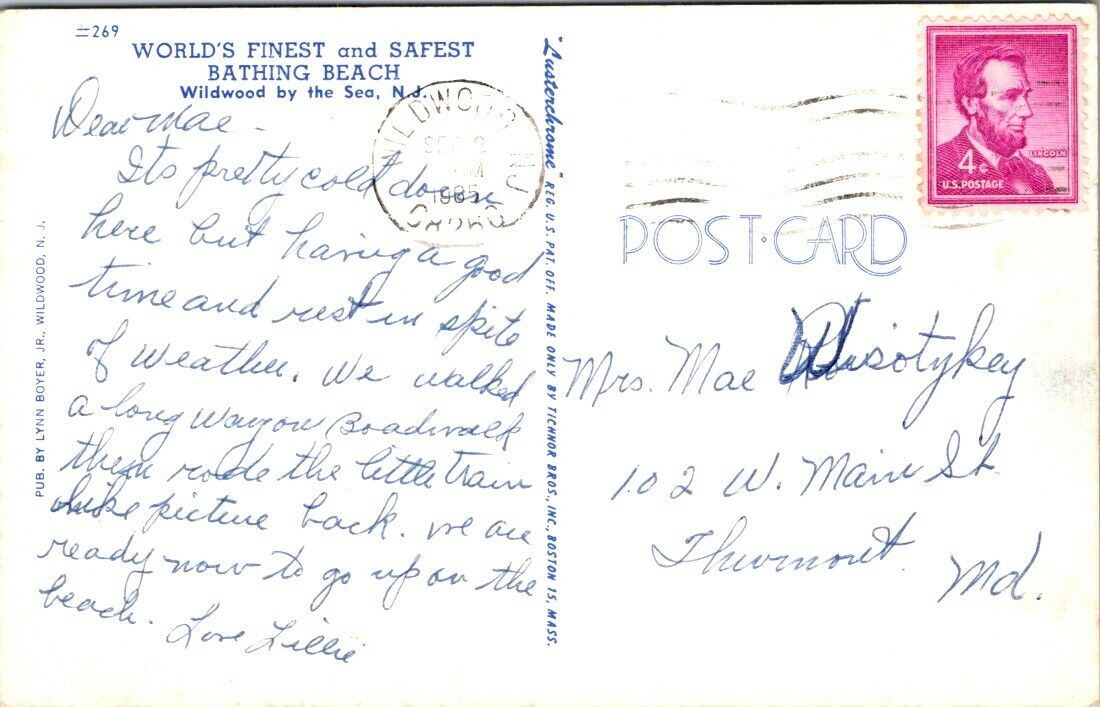 #269
WORLD'S FINEST and SAFEST
BATHING BEACH
Wildwood by the Sea, N.J.
Dear Mae -
Its pretty cold down
here but having a good
time and rest in spite
of weather. We walked
a long way on Boadwalk
then rode the little train
like picture back. we are
ready now to go up on the
beach.
Love Lillie
PUB. BY LYNN BOYER, JR., WILDWOOD, N. J.
"Lusterchrome" REG. U.S. PAT. OFF. MADE ONLY BY TICHNOR BROS., INC., BOSTON 15, MASS.
WILDWOOD NJ
SEP 2
AM
1965
08260
LINCOLN
4¢
U.S. POSTAGE
POST CARD
Mrs. Mae
102 W. Main St.
Thurmont.
Md.